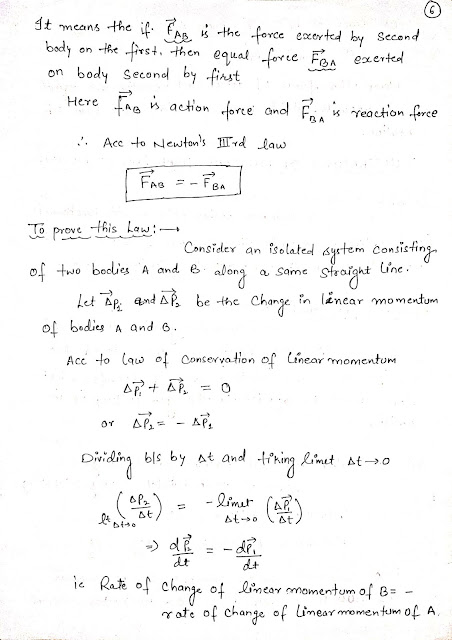 6
It means the if. F⃗AB is the force exerted by second
body on the first. then equal force F⃗BA exerted
on body second by first
Here F⃗AB is action force and F⃗BA is reaction force
∴ Acc to Newton's IIIrd law
F⃗AB = - F⃗BA
To prove this Law: →
Consider an isolated system consisting
of two bodies A and B along a same straight line.
Let ΔP⃗1 and ΔP⃗2 be the change in linear momentum
of bodies A and B.
Acc to law of conservation of linear momentum
ΔP⃗1 + ΔP⃗2 = 0
or ΔP⃗2 = - ΔP⃗1
Dividing b/s by Δt and tiking limet Δt→0
lt Δt→0 (ΔP2/Δt) = - limet Δt→0 (ΔP⃗1/Δt)
⇒ dP⃗2/dt = - dP⃗1/dt
ie Rate of change of linear momentum of B = -
rate of change of linear momentum of A.